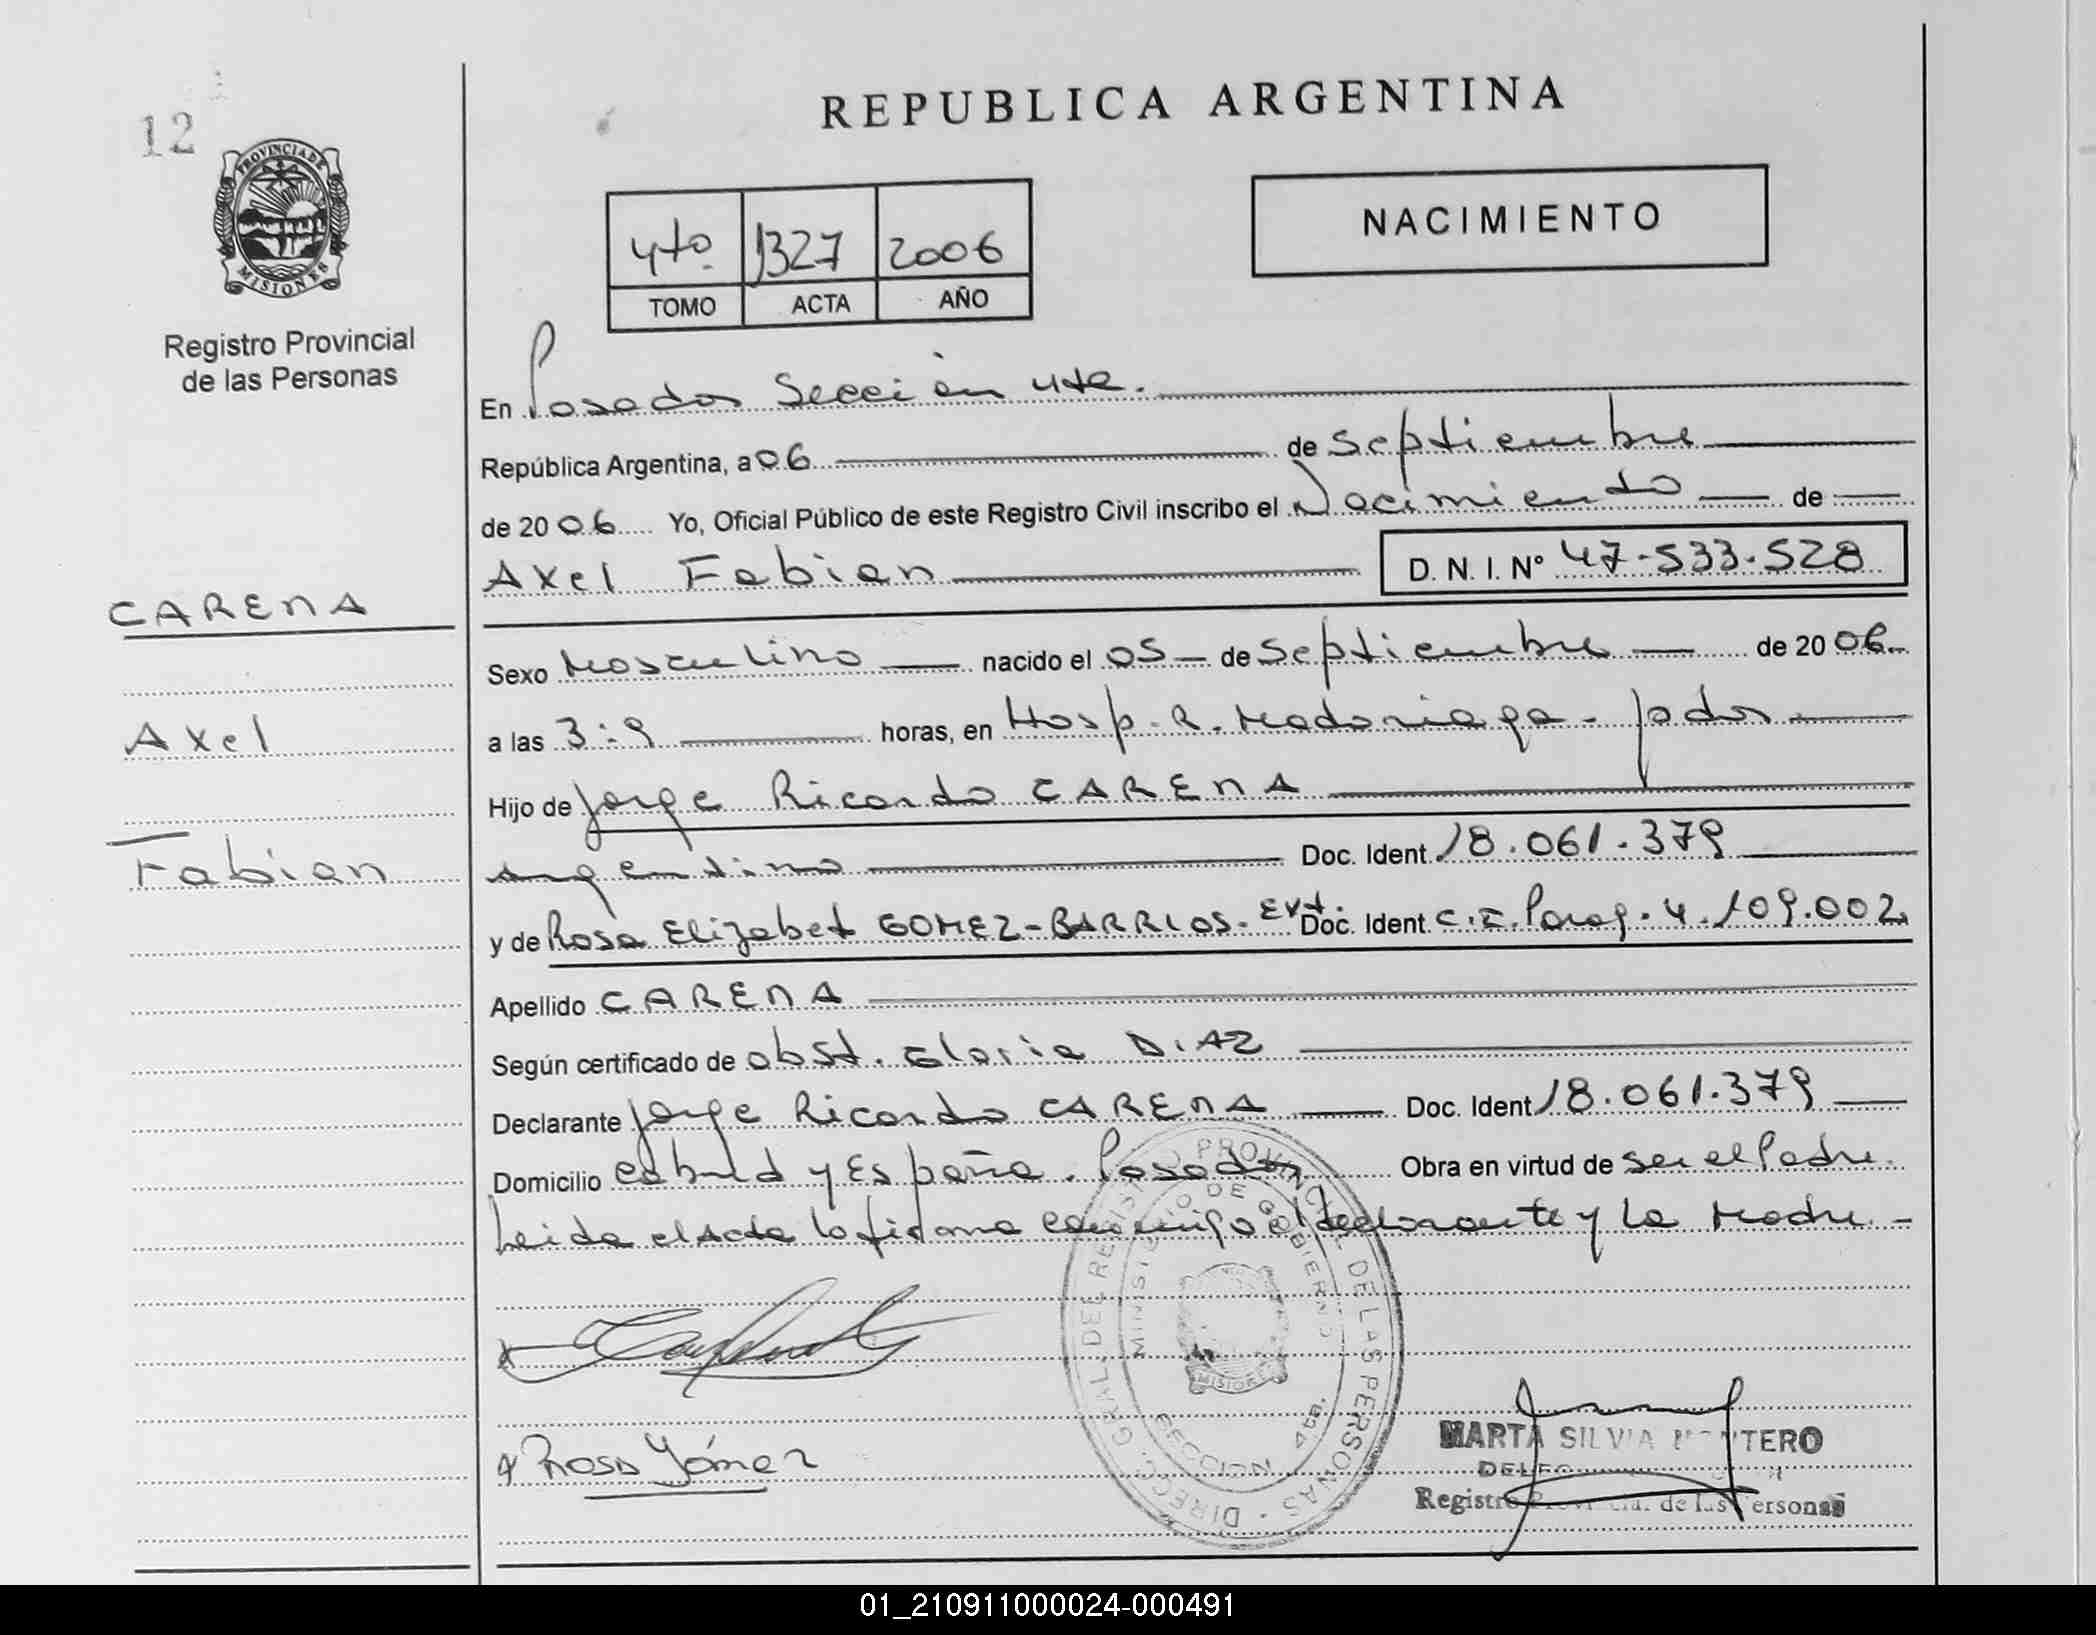 12
PROVINCIA DE
MISIONES
Registro Provincial
de las Personas
REPUBLICA ARGENTINA
4to. 1327 2006
TOMO ACTA AÑO
NACIMIENTO
En Posadas Sección 4ta.
República Argentina, a 06 de Septiembre
de 2006 Yo, Oficial Público de este Registro Civil inscribo el Nacimiento de
Axel Fabian D. N. I. Nº 47.533.528
CARENA
Axel
Fabian
Sexo Masculino nacido el 05 de Septiembre de 2006
a las 3:9 horas, en Hosp. R. Madariaga - pdas
Hijo de Jorge Ricardo CARENA
Argentino Doc. Ident. 18.061.379
y de Rosa Elizabet GOMEZ-BARRIOS. Ext. Doc. Ident C.I. Parag. 4.109.002
Apellido CARENA
Según certificado de obst. Gloria DIAZ
Declarante Jorge Ricardo CARENA Doc. Ident 18.061.379
Domicilio Cabild y España. Posadas Obra en virtud de ser el Padre.
Leida el Acta la firma conmigo el declarante y la Madre -
DIREC. GRAL. DEL REGISTRO PROVINCIAL DE LAS PERSONAS
MINISTERIO DE GOBIERNO
MISIONES
SECCION 4ta.
Rosa Gómez
MARTA SILVIA TERO
Registro Provincial de las Personas
01_210911000024-000491